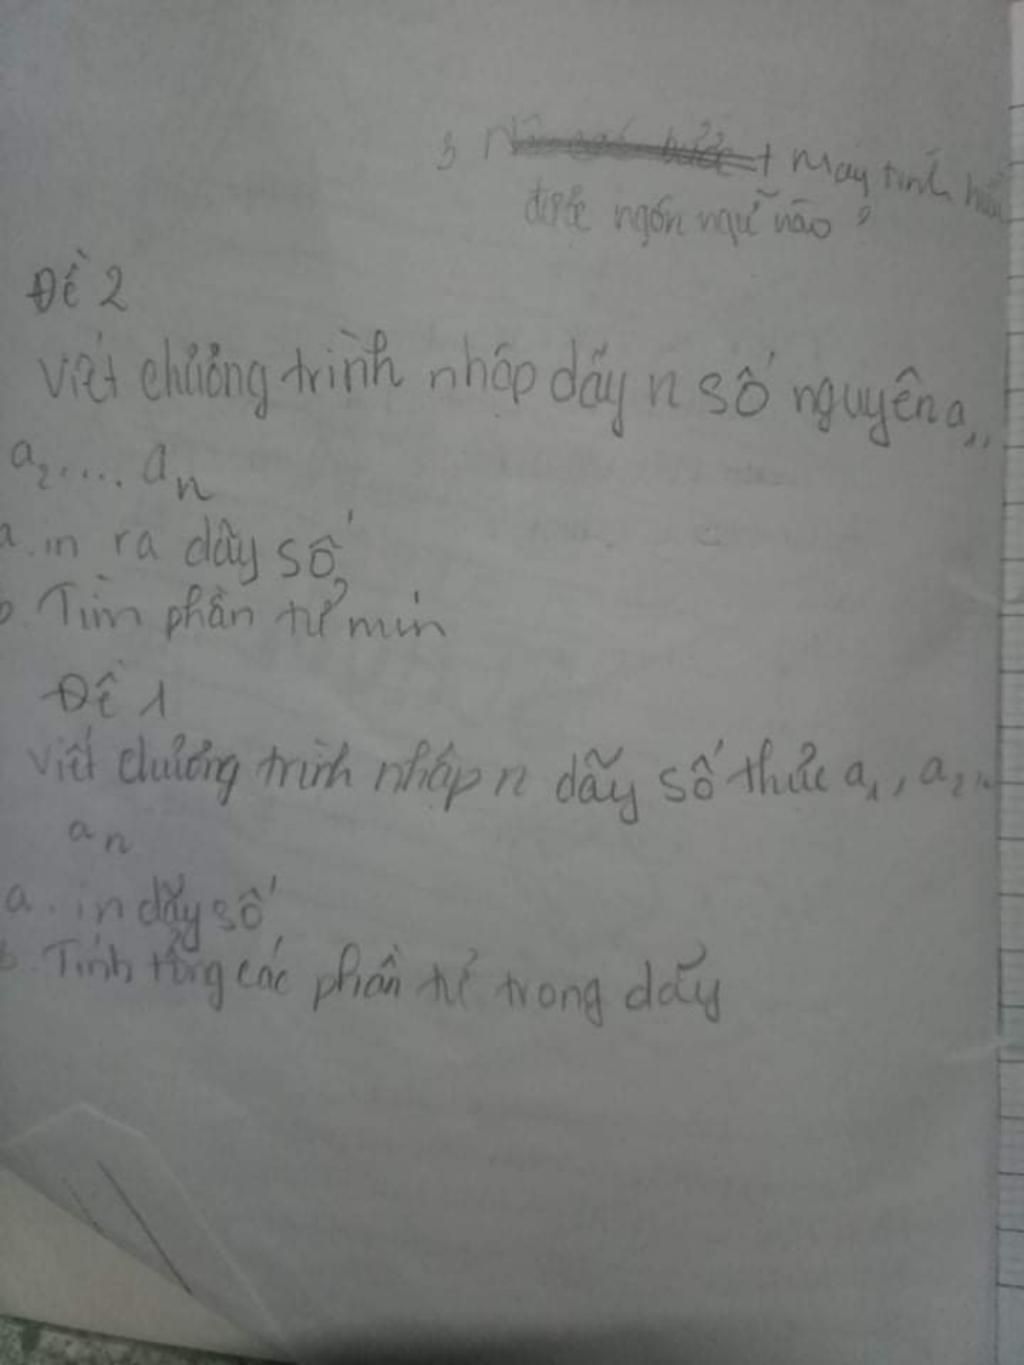 3 Máy tính hiểu
được ngôn ngữ nào?
Đề 2
Viết chương trình nhập dãy n số nguyên a1,
a2.... an
a. in ra dãy số
b. Tìm phần tử min
Đề 1
Viết chương trình nhập n dãy số thực a1, a2,..
an
a. in dãy số
b. Tính tổng các phần tử trong dãy